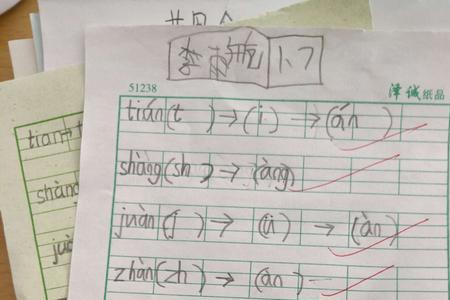 李
1、7
51238
泽诚纸品
tián(t )→(i)→(án )
shàng(sh )→(àng)
juàn(j )→(ü)→(àn)
zhàn(zh)→(àn)
tian
shàng
juà